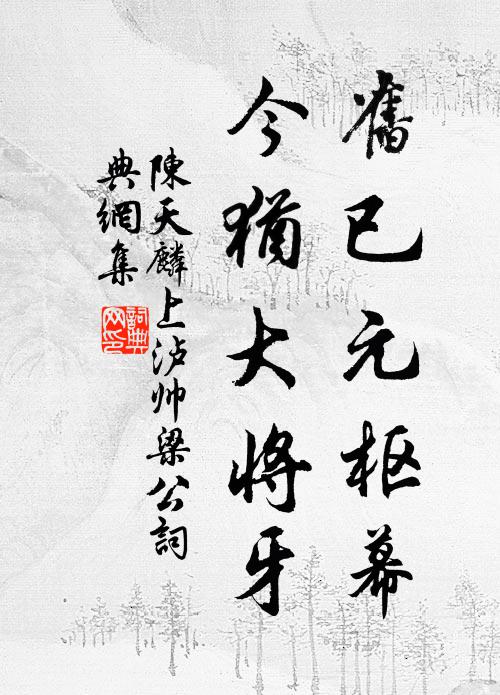 舊已元枢幕
今猶大將牙
陳天麟上泸帅梁公詞
典網集
詞典网印